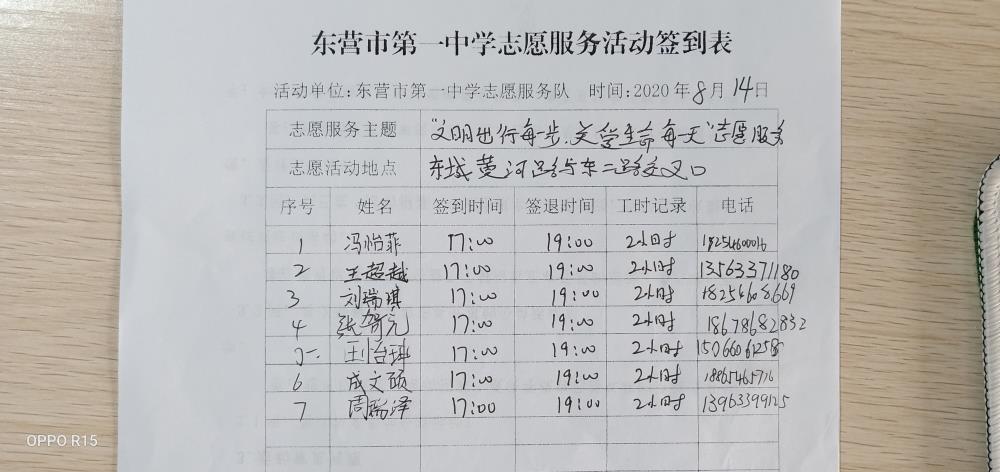 东营市第一中学志愿服务活动签到表
活动单位:东营市第一中学志愿服务队 时间:2020年8月14日
志愿服务主题 "文明出行每一步,关爱生命每一天"志愿服务
志愿活动地点 东城黄河路与东二路交叉口
序号 姓名 签到时间 签退时间 工时记录 电话
1 冯怡菲 17:00 19:00 2小时
2 王超越 17:00 19:00 2小时 13563371180
3 刘瑞琪 17:00 19:00 2小时 18254608669
4 张智元 17:00 19:00 2小时 18678682832
5 17:00 19:00 2小时
6 成文硕 17:00 19:00 2小时 18865465716
7 周瑞泽 17:00 19:00 2小时 13963399125
OPPO R15